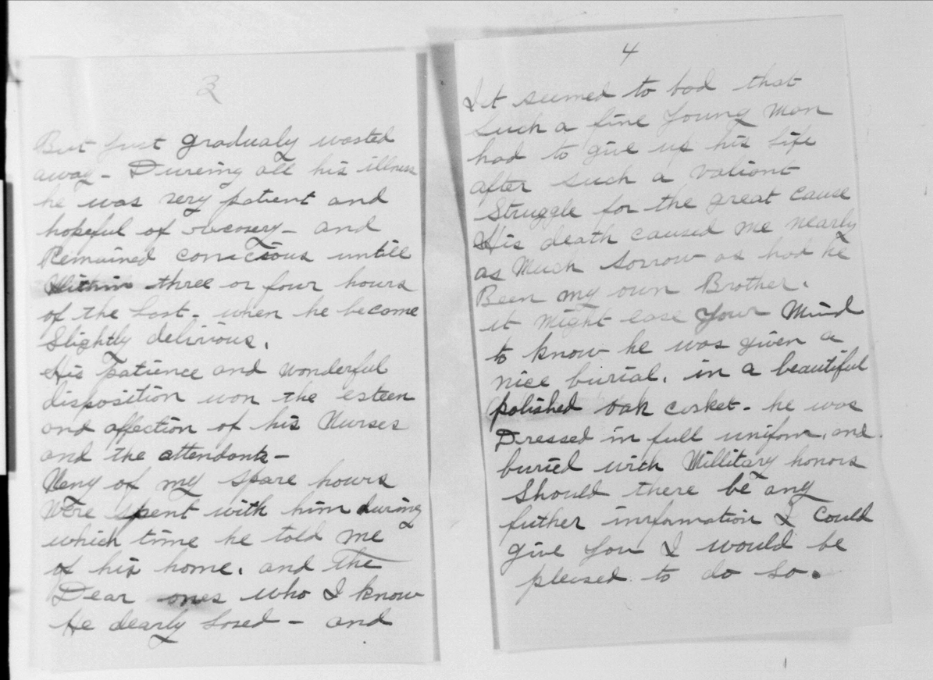 3
But just gradualy wasted
away - Dureing all his illness
he was very patient and
hopeful of recovery - and
Remained conscious untill
Within three or four hours
of the Last. when he become
Slightly delirious.
His patience and wonderful
disposition won the esteen
and affection of his Nurses
and the attendants -
Meny of my spare hours
Were spent with him during
which time he told me
of his home. and the
Dear ones who I know
He dearly Loved - and
4
It seemed to bad that
Such a fine Young Man
had to give up his Life
after such a Valiant
Struggle for the great cause
His death caused me nearly
as Much Sorrow as had he
Been my own Brother.
it might ease Your Mind
to know he was given a
nice burial. in a beautiful
polished oak casket - he was
Dressed in full uniform. and
buried with Millitary honors
Should there be any
futher information I could
give You I would be
pleased to do so.